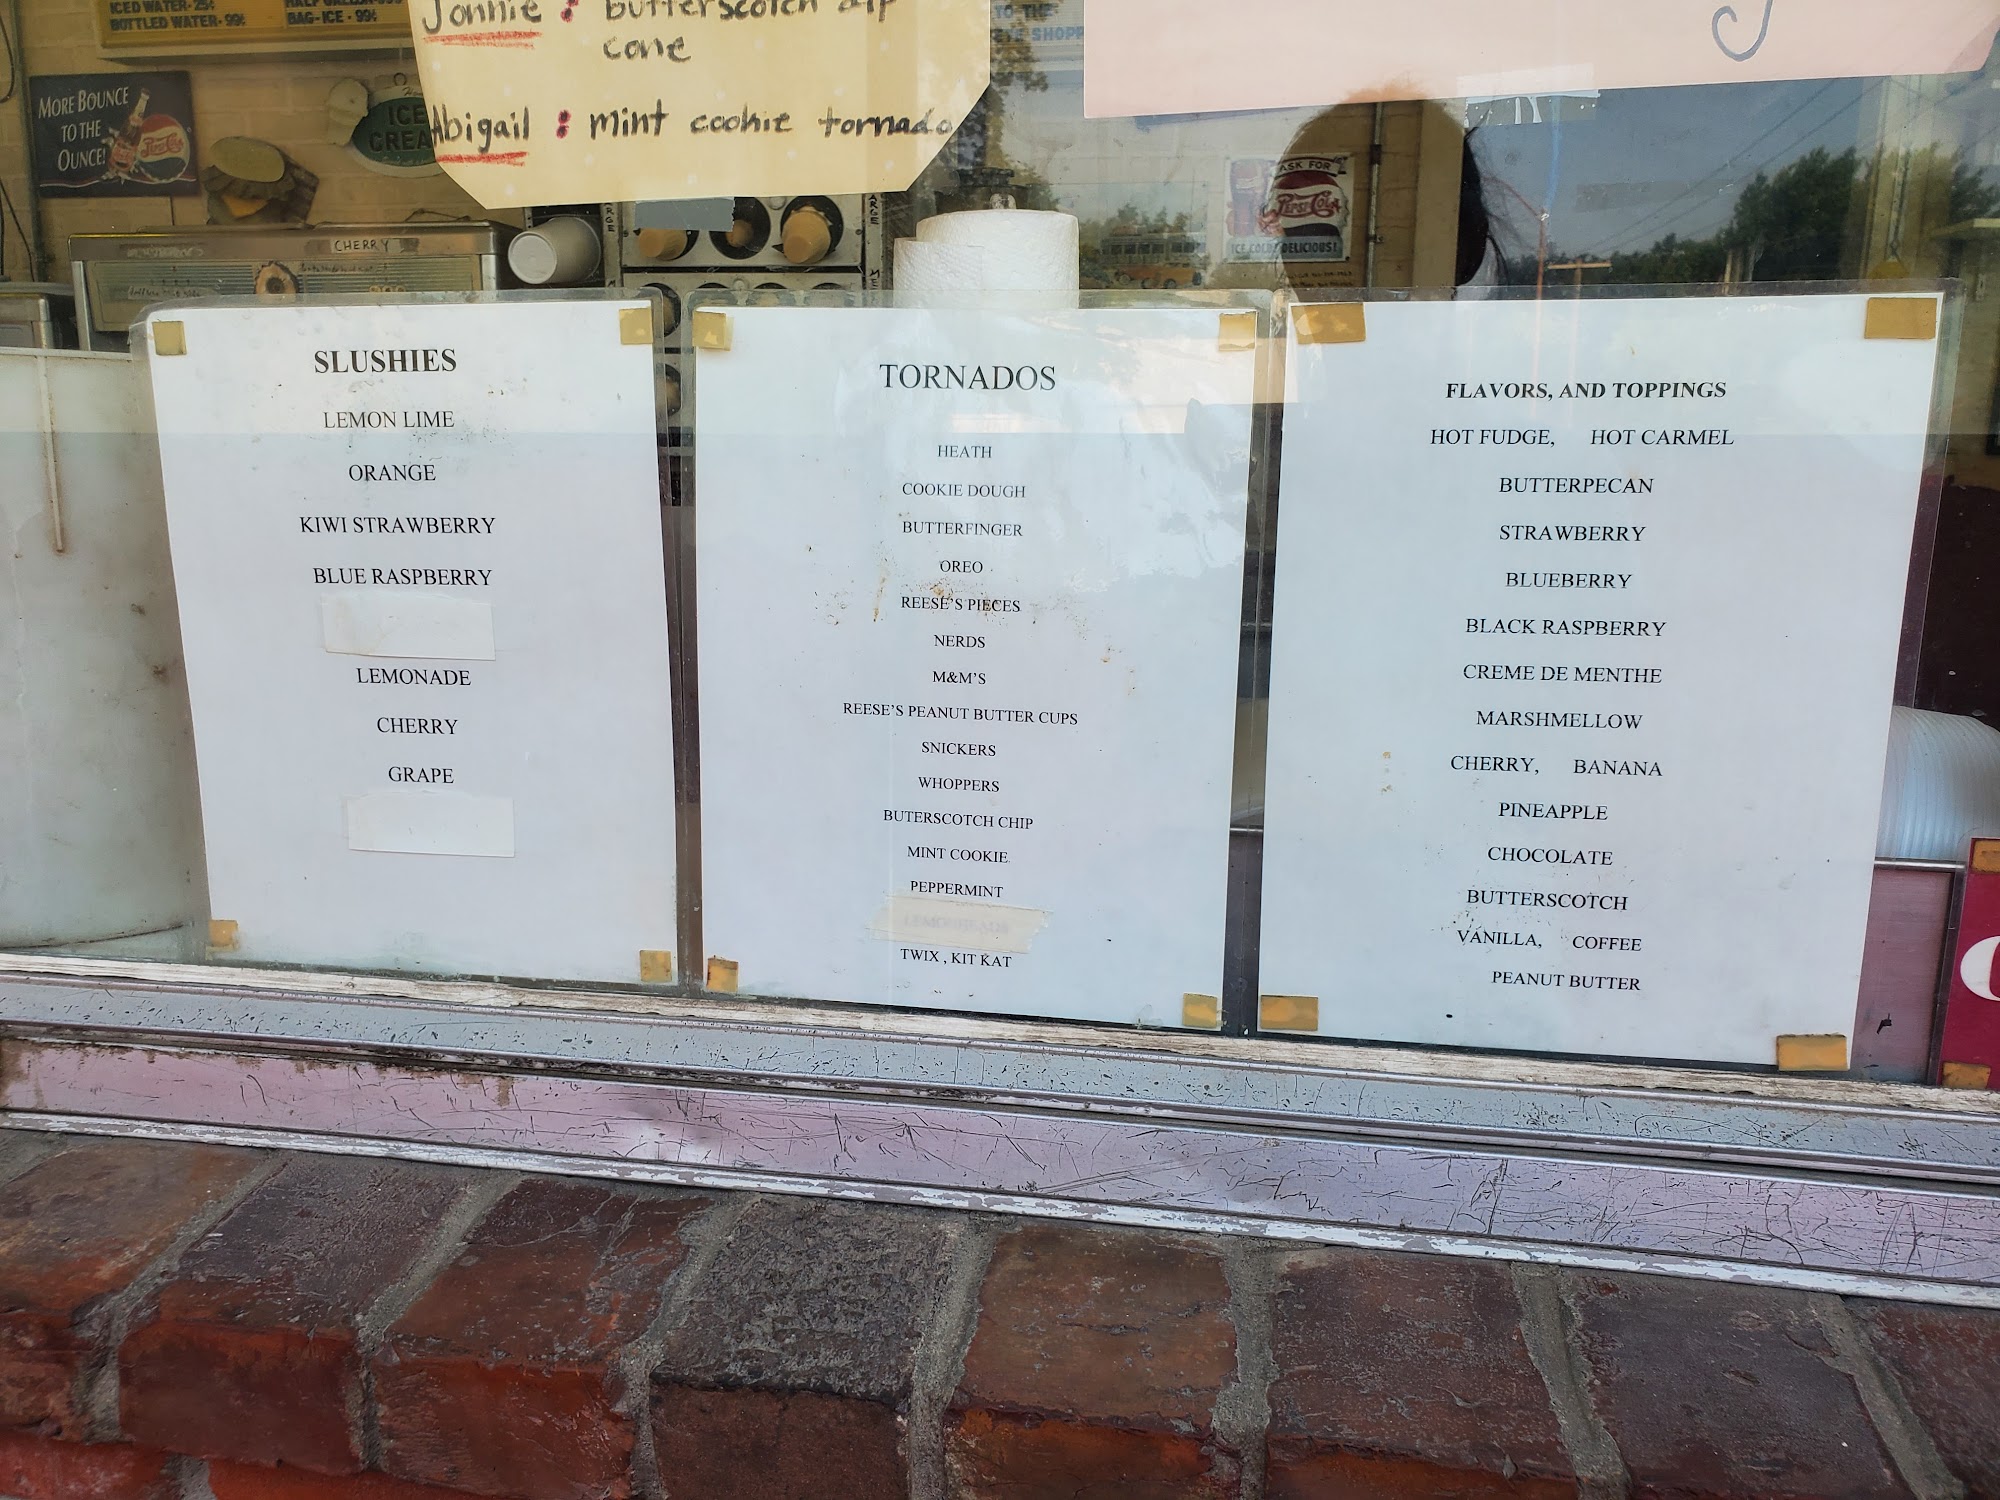 ICED WATER - 25¢
BOTTLED WATER - 99¢
BAG-ICE - 99¢
Jonnie : butterscotch dip
cone
Abigail : mint cookie tornado
TO THE
MORE BOUNCE
TO THE
OUNCE!
Pepsi-Cola
ICE
CREA
CHERRY
ASK FOR
PEPSI-COLA
ICE COLD DELICIOUS!
SLUSHIES
LEMON LIME
ORANGE
KIWI STRAWBERRY
BLUE RASPBERRY
LEMONADE
CHERRY
GRAPE
TORNADOS
HEATH
COOKIE DOUGH
BUTTERFINGER
OREO
REESE'S PIECES
NERDS
M&M'S
REESE'S PEANUT BUTTER CUPS
SNICKERS
WHOPPERS
BUTERSCOTCH CHIP
MINT COOKIE
PEPPERMINT
LEMONHEADS
TWIX , KIT KAT
FLAVORS, AND TOPPINGS
HOT FUDGE, HOT CARMEL
BUTTERPECAN
STRAWBERRY
BLUEBERRY
BLACK RASPBERRY
CREME DE MENTHE
MARSHMELLOW
CHERRY, BANANA
PINEAPPLE
CHOCOLATE
BUTTERSCOTCH
VANILLA, COFFEE
PEANUT BUTTER